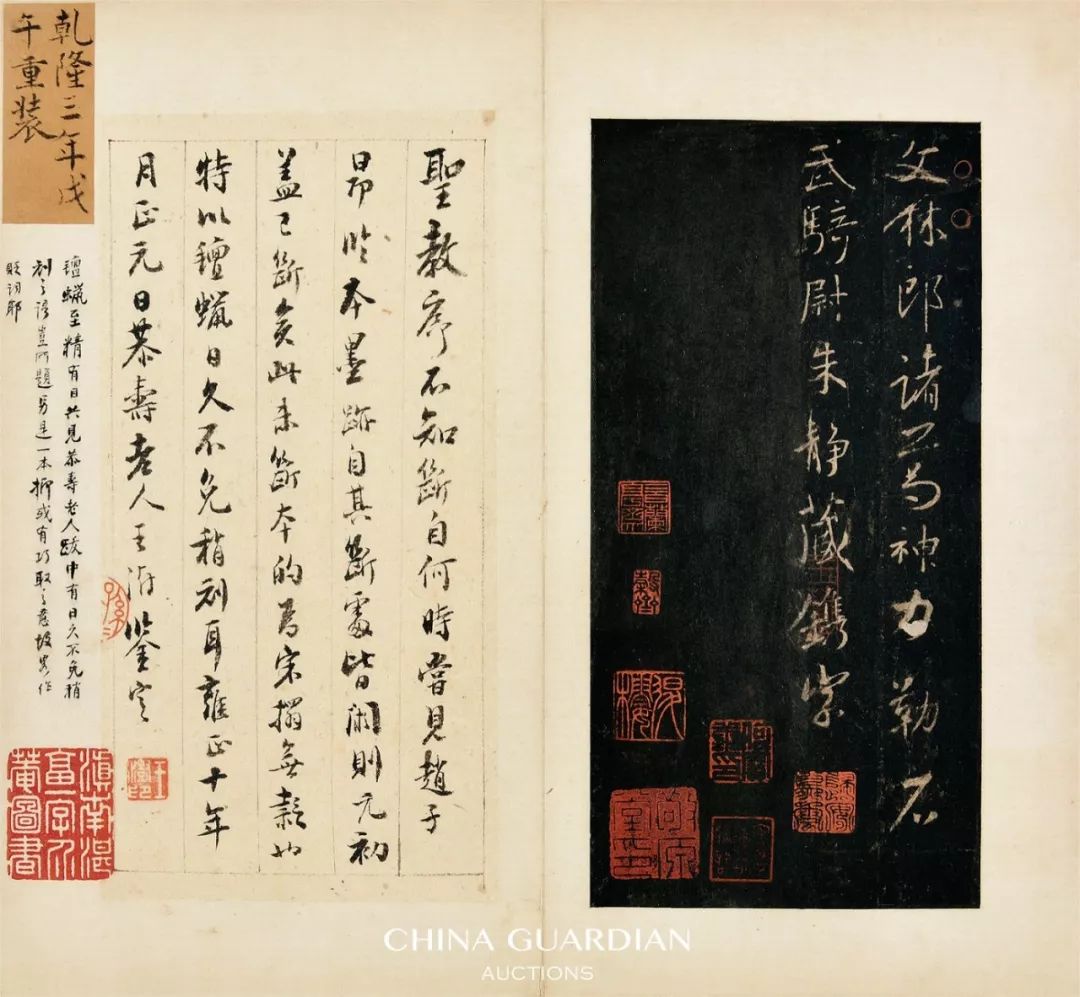 文林郎諸葛神力勒石
武騎尉朱静藏鐫字
聖教序不知斷自何時嘗見趙子
昂臨本墨跡自其斷處皆闕則元初
蓋已斷矣此未斷本的為宋搨無疑也
特以氊蠟日久不免稍剥耳雍正十年
月正元日恭壽老人王澍鑒定
王澍印
乾隆三年戊
午重裝
氊蠟至精有目共見恭壽老人跋中有日久不免稍
剥之語豈所題另是一本抑或有巧取之意故為作
貶詞耶
CHINA GUARDIAN
AUCTIONS